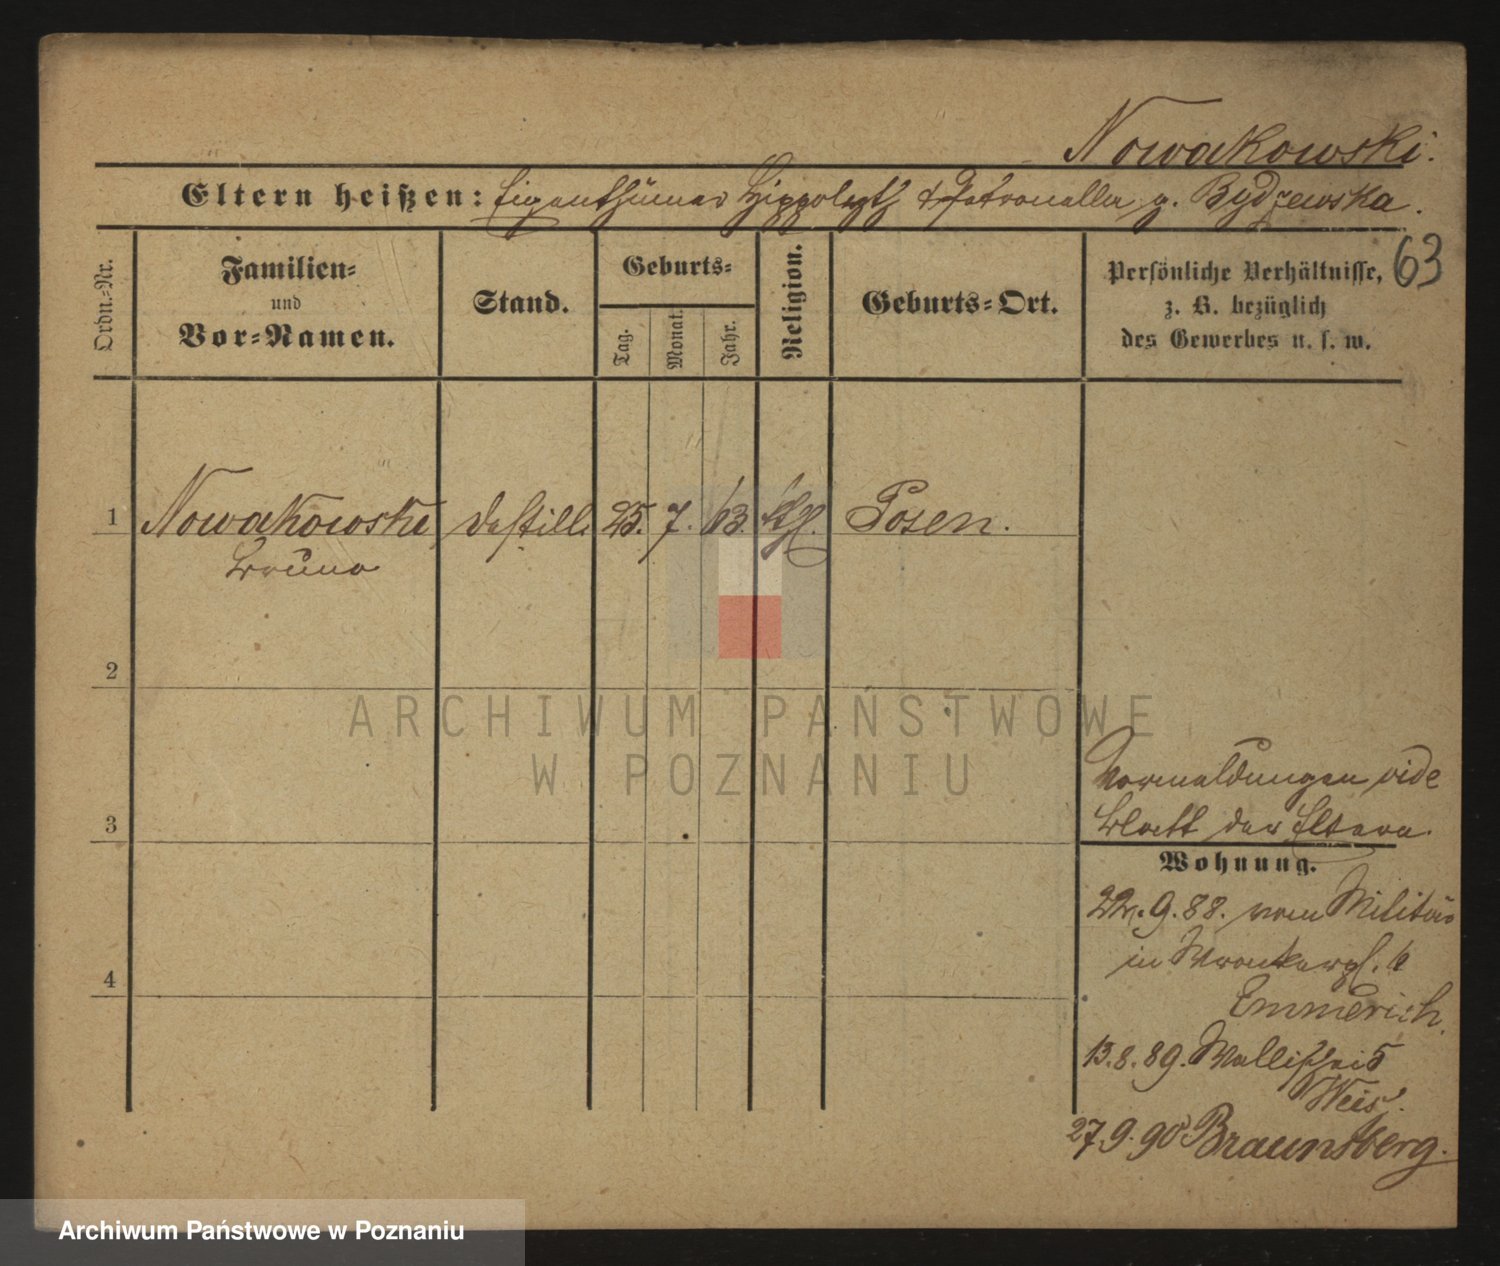 Nowakowski.
Eltern heißen: Eigenthümer Hippolyth & Petronella g. Bydzewska.
63
Ordn.-Nr.
Familien-
und
Vor-Namen.
Stand.
Geburts-
Tag.
Monat.
Jahr.
Religion.
Geburts-Ort.
Persönliche Verhältnisse,
z. B. bezüglich
des Gewerbes u. s. w.
1 Nowakowski Destill. 25. 7. 63. kthl. Posen.
Bruno
2
ARCHIWUM PAŃSTWOWE
W POZNANIU
3
4
Vormeldungen vide
Blatt der Eltern.
Wohnung.
22.9.88. vom Militär
in Wronkerpl. 6
Emmerich.
13.8.89. Wallischei 5
Weis.
27.9.90 Braunsberg.
Archiwum Państwowe w Poznaniu